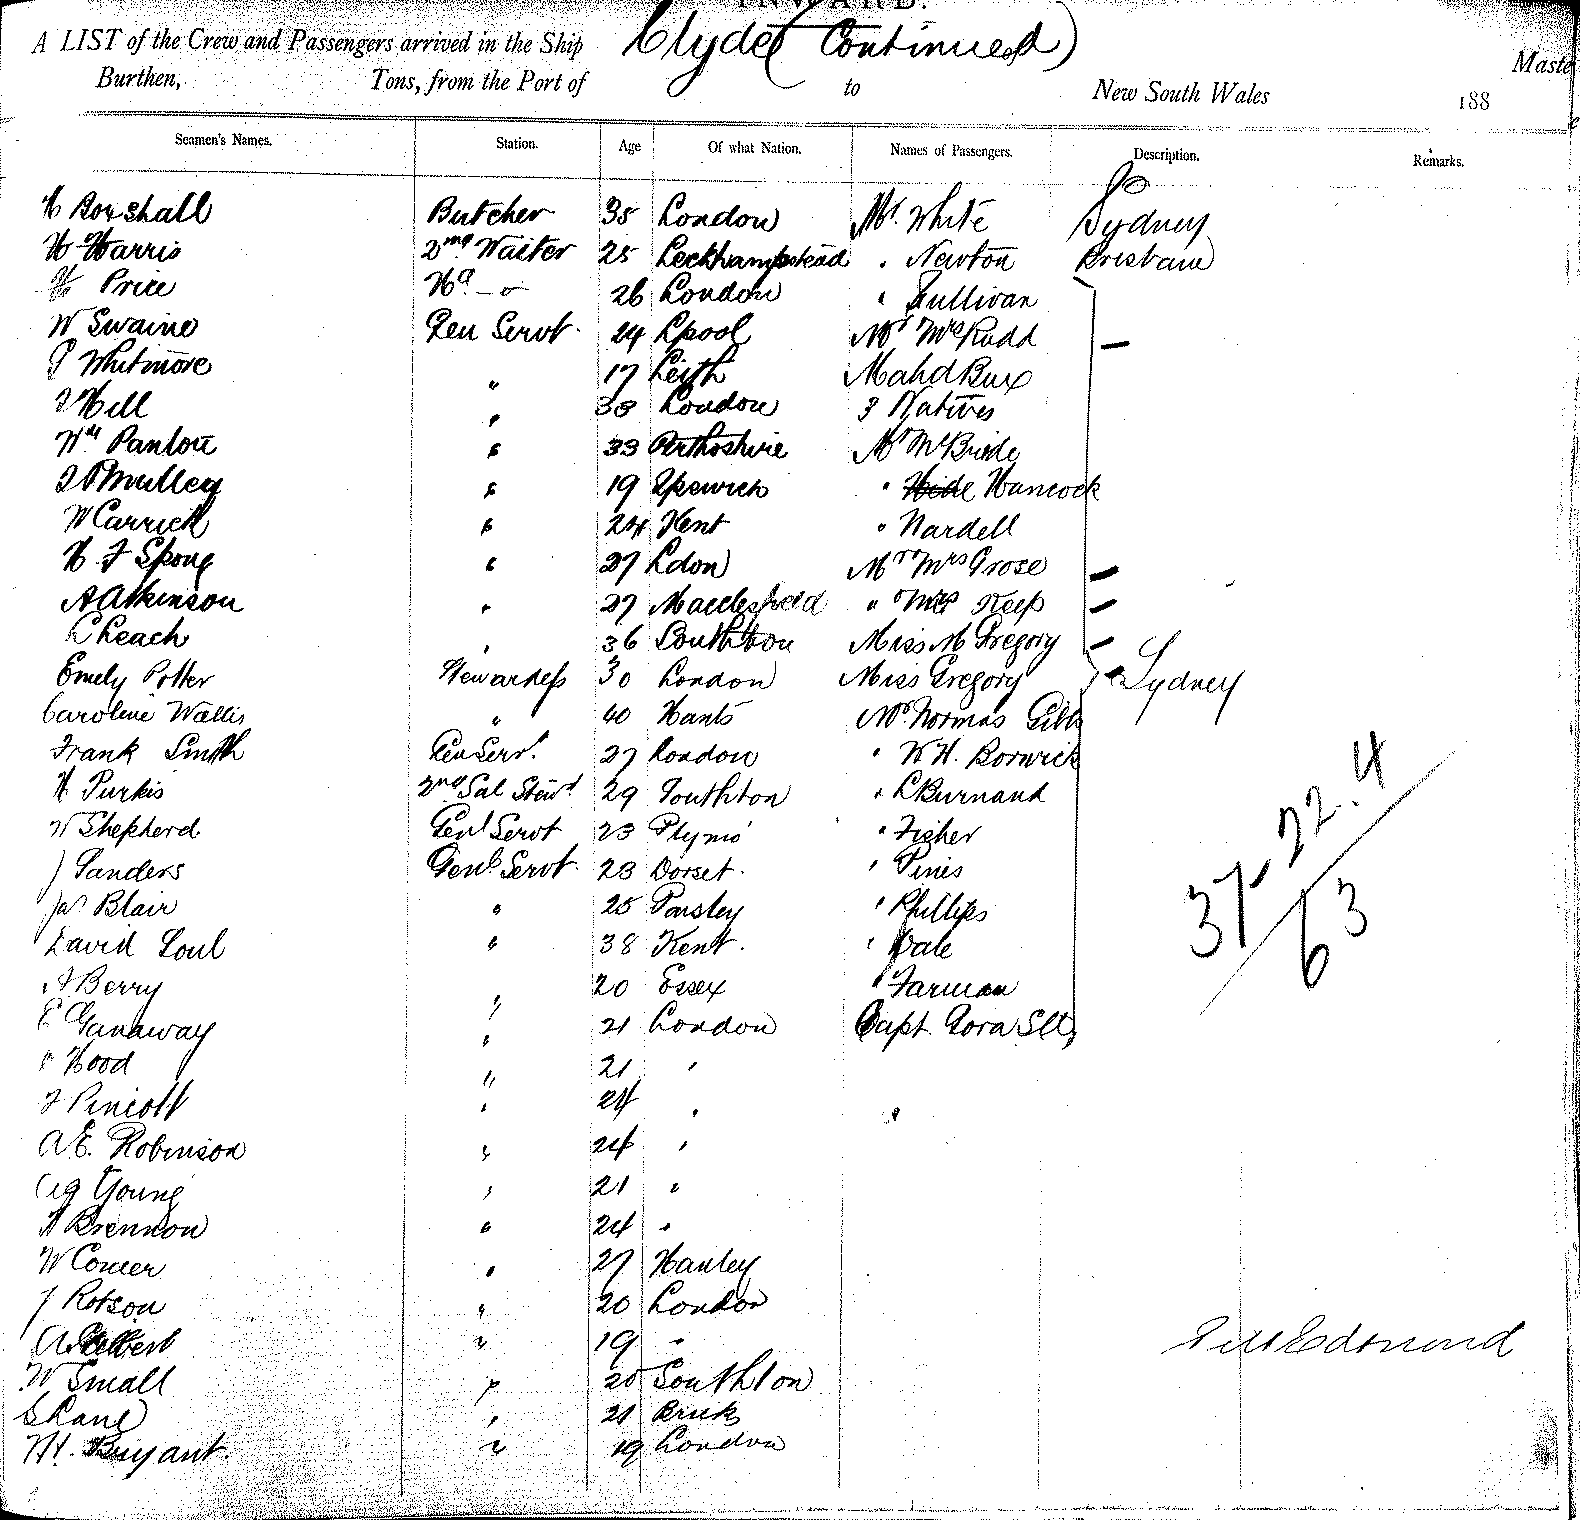 INWARD.
A LIST of the Crew and Passengers arrived in the Ship Clyde (Continued) Maste
Burthen, Tons, from the Port of to New South Wales 188
Seamen's Names. Station. Age Of what Nation. Names of Passengers. Description. Remarks.
H Boxshall Butcher 35 London Mr. White Sydney
W Harris 2nd Waiter 25 Leckhampstead " Newton Brisbane
Price 26 London " Sullivan
W Swaine Gen Servt. 24 Lpool Mr Mrs Rudd
Whitmore " 17 Leith Mahd Bux
J Hill " 38 London 3 Natives
Wm Panton " 33 Perthshire Mr McBride
J P Mulley " 19 Ipswich " Hancock
W Carrick " 24 Kent " Nardell
H F Spong " 27 Ldon Mr Mrs Grose
A Atkinson " 27 Macclesfield " Mrs Keep
C Leach " 36 Southton Miss M Gregory
Emely Potter Stewardess 30 London Miss Gregory Sydney
Caroline Wallis " 40 Hants Mr. Norman Gibbs
Frank Smith Gen Servt. 27 London " W H. Borwick
H Purkis 2nd Sal Stewd 29 Southton " L Burnand
W Shepherd Genl Servt 23 Plymo " Fisher
J Sanders Genl Servt. 23 Dorset. " Pines
Jas Blair " 25 Paisley " Phillips
David Soul " 38 Kent. " Dale
A Berry " 20 Essex " Farman
E Ganaway " 21 London Capt. Gora Slt
Hood " 21 "
J Pincott " 24 "
A E. Robinson " 24 "
Young " 21 "
A Brennon " 24 "
W Comer " 27 Hanley
J Robson " 20 London
19 "
W Small " 20 Southton
S Lane " 21
Bryant. " 19 London
37. 22. 4
63